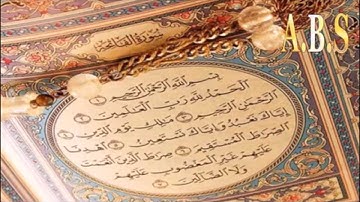 A.B.S
سورة الفاتحة
بسم الله الرحمن الرحيم
الحمد لله رب العالمين
الرحمن الرحيم ملك يوم الدين
إياك نعبد وإياك نستعين اهدنا
الصرط المستقيم صرط الذين أنعمت
عليهم غير المغضوب عليهم
ولا الضالين